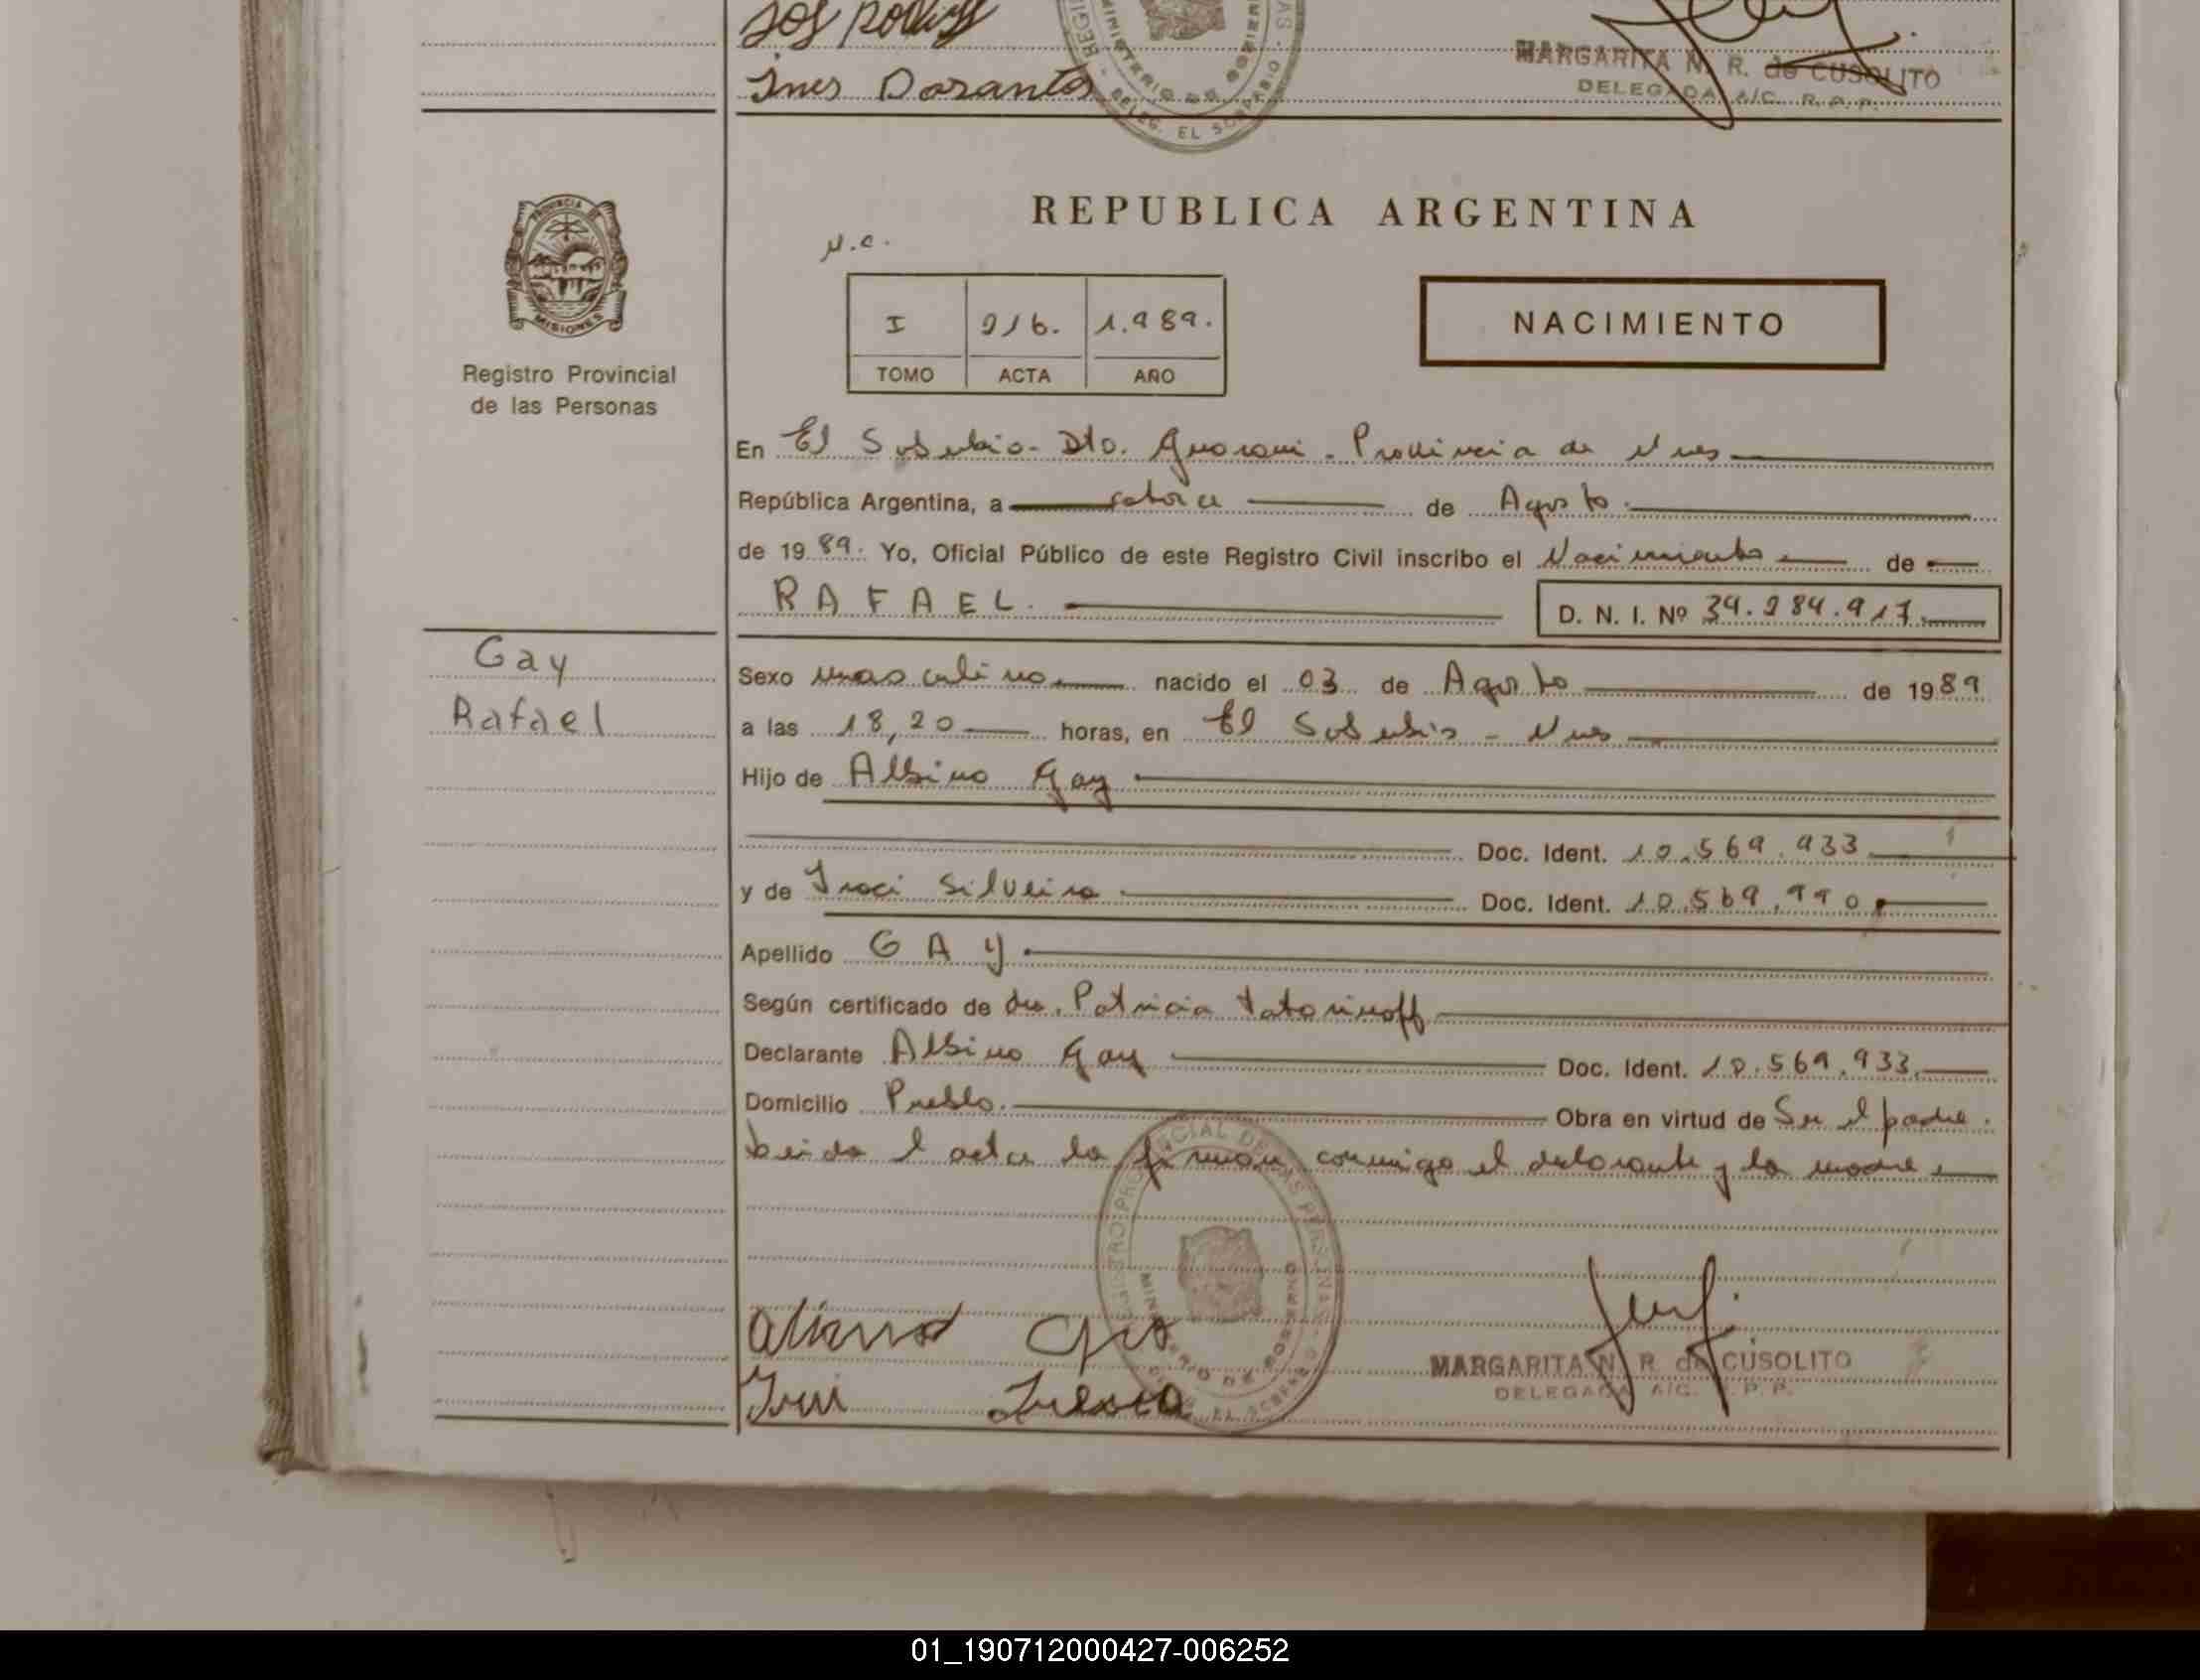 Ines Dorantes
MARGARITA N. R. de CUSOLITO
DELEGADA A/C. R. P. P.
REPUBLICA ARGENTINA
PROVINCIA DE
MISIONES
Registro Provincial
de las Personas
I 216. 1.989.
TOMO ACTA AÑO
NACIMIENTO
En El Soberbio - Dto. Guarani - Provincia de Mnes
República Argentina, a catorce de Agosto
de 1989. Yo, Oficial Público de este Registro Civil inscribo el Nacimiento de
RAFAEL. D. N. I. Nº 34.284.917
Gay
Rafael
Sexo masculino nacido el 03 de Agosto de 1989
a las 18,20 horas, en El Soberbio - Mnes
Hijo de Albino Gay
Doc. Ident. 10.569.933
y de Iraci Silveira Doc. Ident. 10.569.990
Apellido GAY
Según certificado de dra. Patricia
Declarante Albino Gay Doc. Ident. 10.569.933.
Domicilio Pueblo. Obra en virtud de Ser el padre.
Leida el acta la firman conmigo el declarante y la madre
MARGARITA N. R. de CUSOLITO
DELEGADA A/C. R. P. P.
01_190712000427-006252